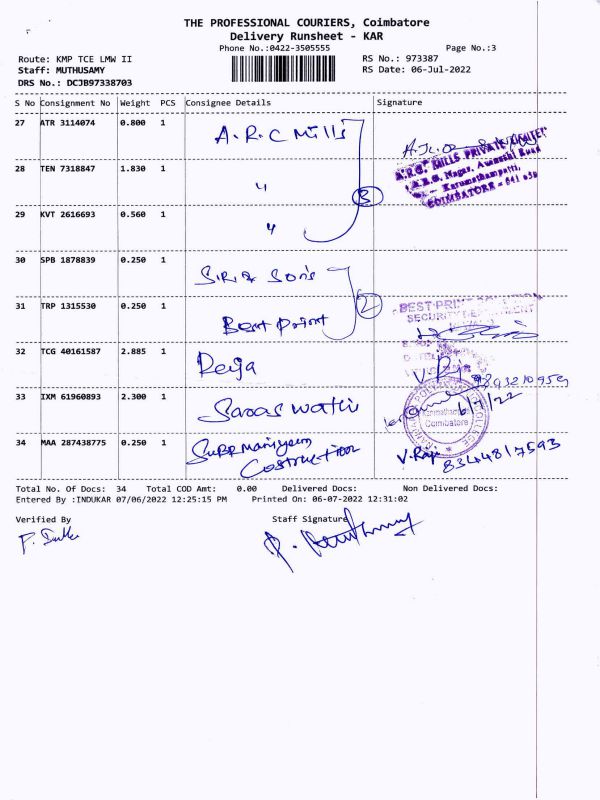 THE PROFESSIONAL COURIERS, Coimbatore
Delivery Runsheet - KAR
Phone No.:0422-3505555 Page No.:3
Route: KMP TCE LMW II RS No.: 973387
Staff: MUTHUSAMY RS Date: 06-Jul-2022
DRS No.: DCJB97338703
S No Consignment No Weight PCS Consignee Details Signature
27 ATR 3114074 0.800 1 A.R.C Mills
A.R.C. MILLS PRIVATE LIMITED
A.R.G. Nagar, Avanashi Road
Karumathampatti,
COIMBATORE - 641 659
28 TEN 7318847 1.830 1 "
3
29 KVT 2616693 0.560 1 "
30 SPB 1878839 0.250 1
2
31 TRP 1315530 0.250 1 Best Print
BEST PRINT
SECURITY DEPARTMENT
32 TCG 40161587 2.885 1
V. Raja
33 IXM 61960893 2.300 1 Saraswathi
6/7/22
Coimbatore
34 MAA 287438775 0.250 1
V. Raja 8344817593
Total No. Of Docs: 34 Total COD Amt: 0.00 Delivered Docs: Non Delivered Docs:
Entered By :INDUKAR 07/06/2022 12:25:15 PM Printed On: 06-07-2022 12:31:02
Verified By Staff Signature